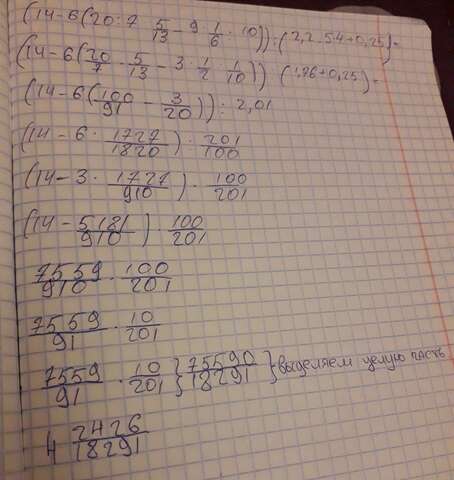 (14-6(20:7 5/13 - 9 1/6 · 10)):(2,2-5,4+0,25)=
(14-6(20/7 · 5/13 - 3 · 1/2 · 1/10)) (1,76+0,25)=
(14-6(100/91 - 3/20)):2,01
(14-6 · 1727/1820) : 201/100
(14-3 · 1727/910) · 100/201
(14-5181/910) · 100/201
7559/910 · 100/201
7559/91 · 10/201
7559/91 · 10/201 } 75590/18291 } выделяем целую часть
4 2426/18291